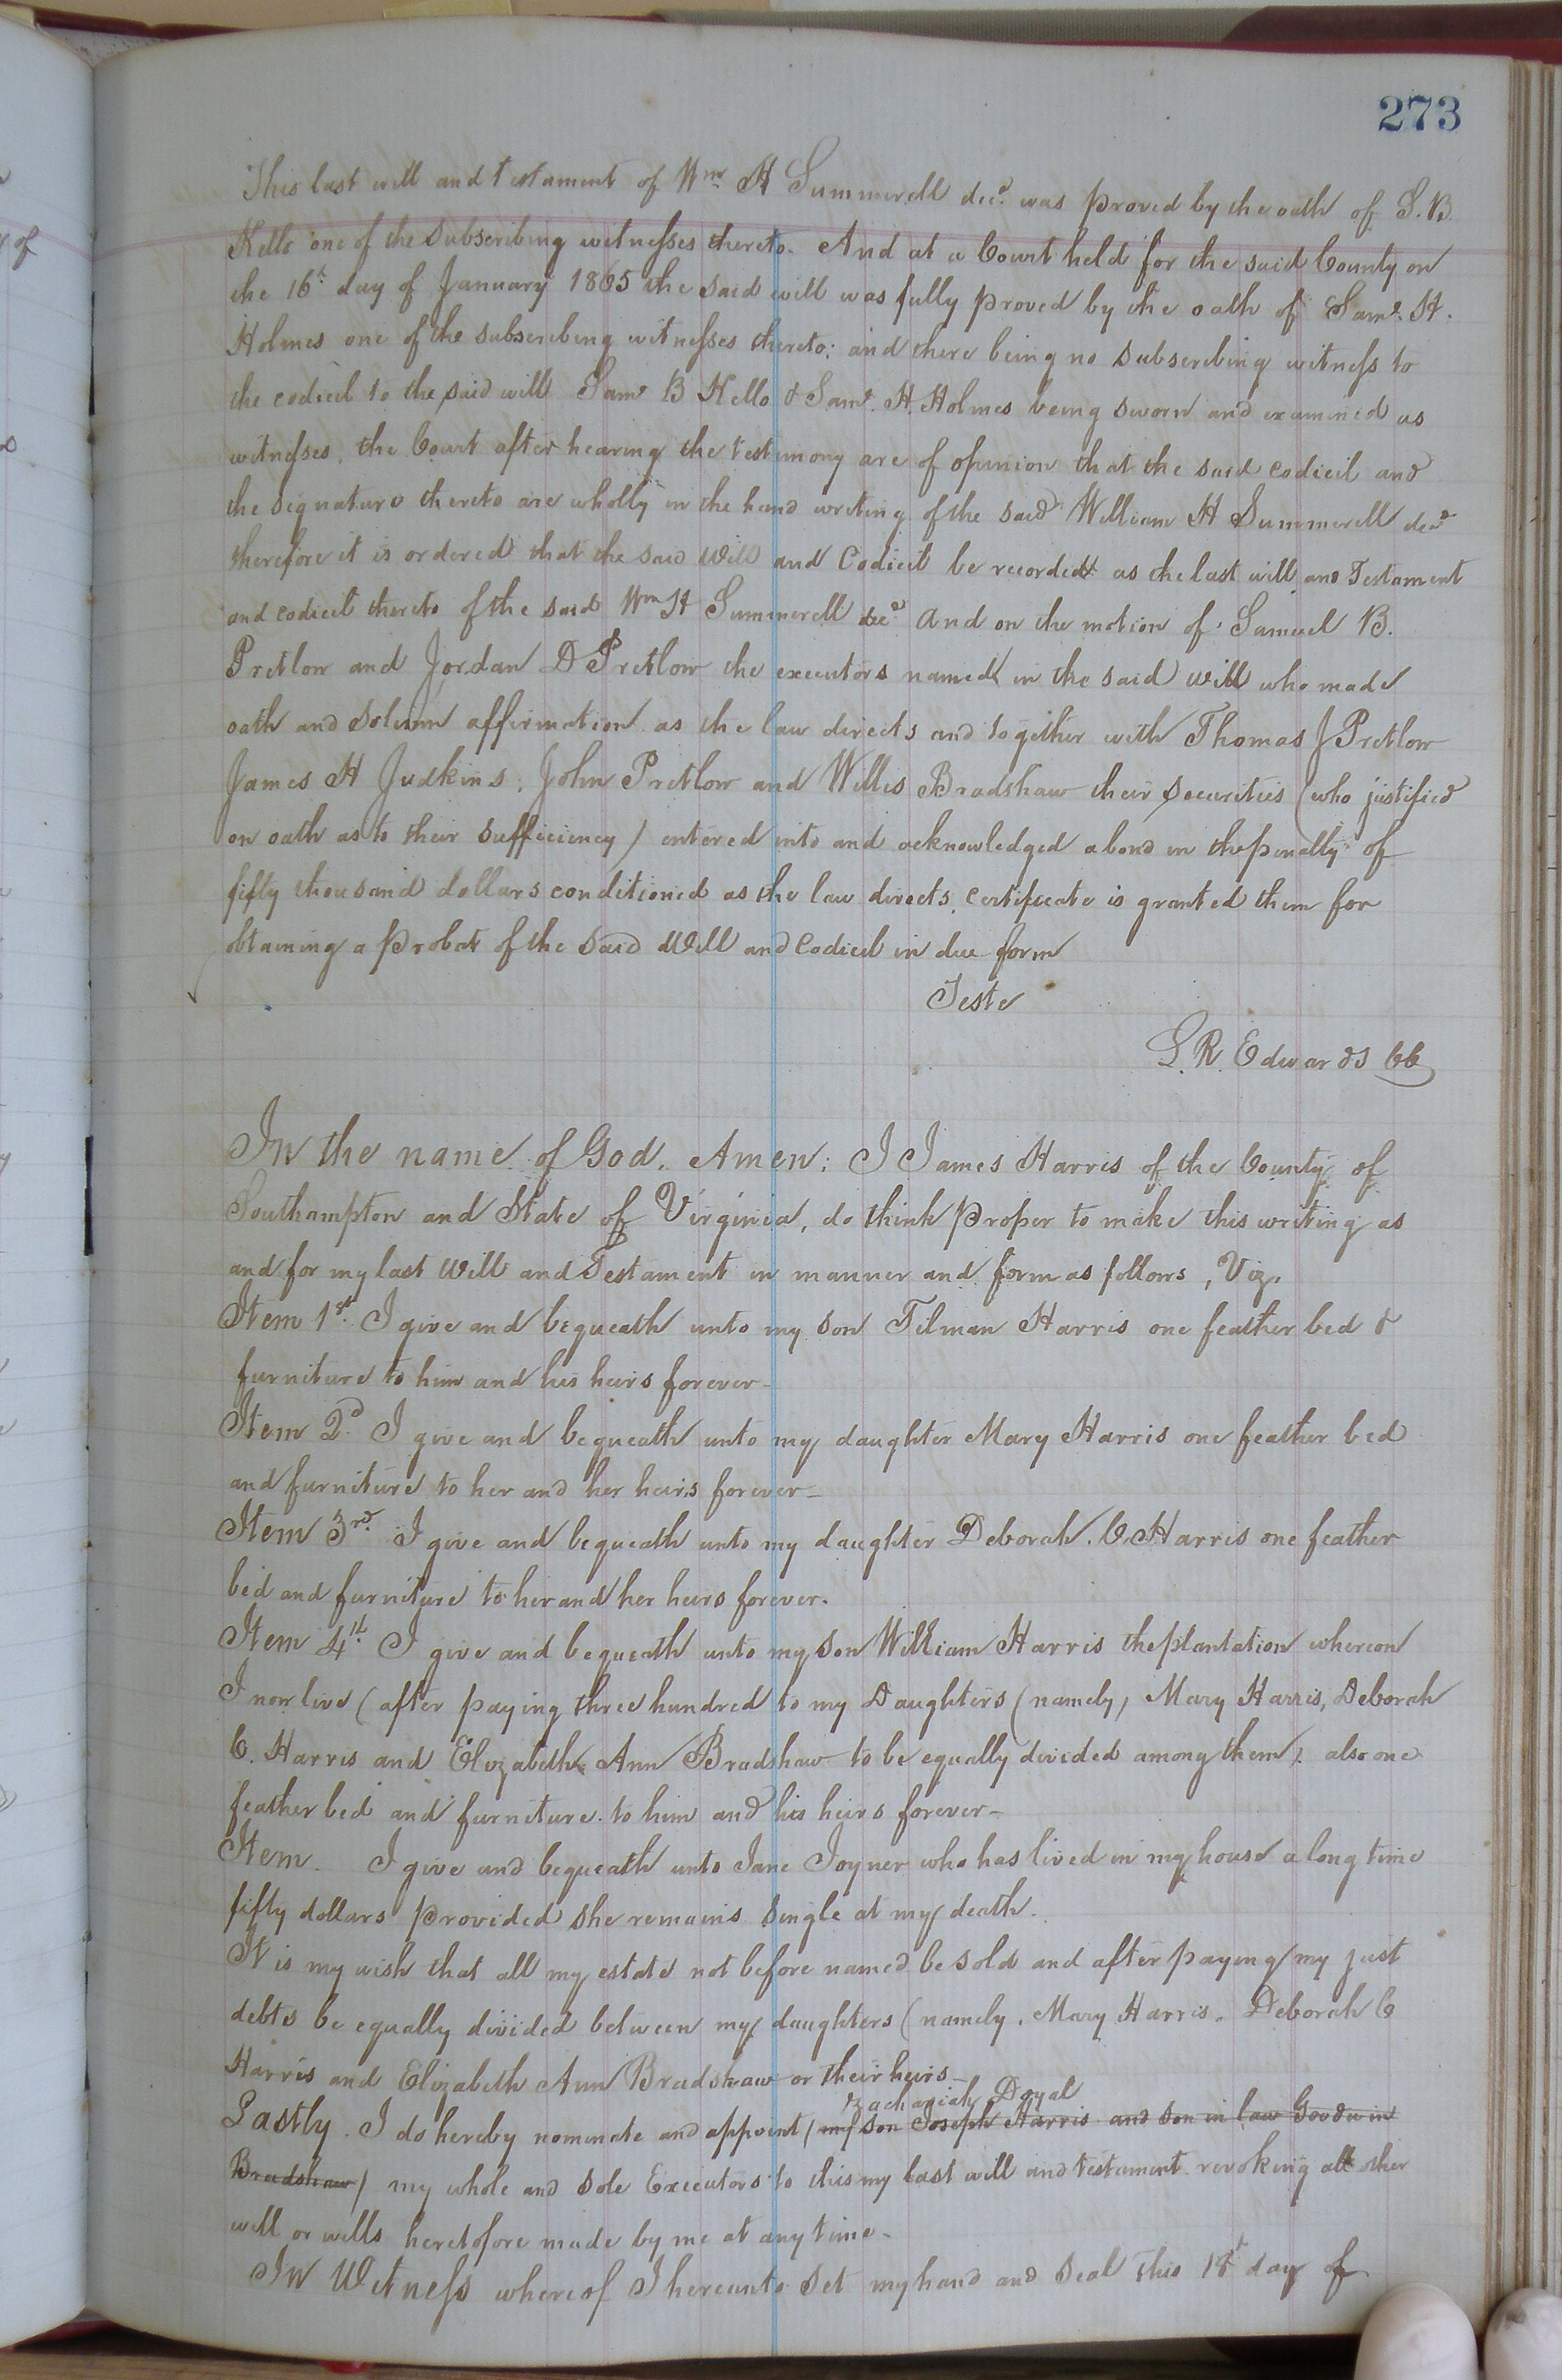 273
This last will and testament of Wm H Summerell decd. was proved by the oath of S. B.
Kello one of the subscribing witnesses thereto. And at a Court held for the said County on
the 16th day of January 1865 the said will was fully proved by the oath of Saml. H.
Holmes one of the subscribing witnesses thereto; and there being no subscribing witness to
the codicil to the said will Saml B Kello & Saml. H. Holmes being sworn and examined as
witnesses, the Court after hearing the testimony are of opinion that the said codicil and
the signature thereto are wholly in the hand writing of the said William H Summerell decd
therefore it is ordered that the said Will and Codicil be recorded as the last will and Testament
and codicil thereto of the said Wm H Summerell decd And on the motion of Samuel B.
Pretlow and Jordan D Pretlow the executors named in the said will who made
oath and solemn affirmation as the law directs and together with Thomas J Pretlow
James H Judkins, John Pretlow and Willis Bradshaw their securities (who justified
on oath as to their sufficiency) entered into and acknowledged a bond in the penalty of
fifty thousand dollars conditioned as the law directs, certificate is granted them for
obtaining a probat of the said Will and Codicil in due form
Teste
L. R. Edwards CC
In the name of God. Amen: I James Harris of the County of
Southampton and State of Virginia, do think proper to make this writing as
and for my last Will and Testament in manner and form as follows, Viz.
Item 1st. I give and bequeath unto my son Tilman Harris one feather bed &
furniture to him and his heirs forever-
Item 2d. I give and bequeath unto my daughter Mary Harris one feather bed
and furniture to her and her heirs forever-
Item 3rd. I give and bequeath unto my daughter Deborah. C. Harris one feather
bed and furniture to her and her heirs forever.
Item 4th. I give and bequeath unto my son William Harris the plantation whereon
I now live (after paying three hundred to my Daughters (namely, Mary Harris, Deborah
C. Harris and Elizabeth Ann Bradshaw to be equally divided among them). also one
feather bed and furniture. to him and his heirs forever-
Item. I give and bequeath unto Jane Joyner who has lived in my house a long time
fifty dollars provided she remains single at my death.
It is my wish that all my estate not before named be sold and after paying my just
debts be equally divided between my daughters (namely, Mary Harris. Deborah C
Harris and Elizabeth Ann Bradshaw or their heirs-
Zachariah Doyal
Lastly. I do hereby nominate and appoint (my son Joseph Harris and son in law Goodwin
Bradshaw) my whole and sole Executors to this my last will and testament revoking all other
will or wills heretofore made by me at any time-
In Witness whereof I hereunto set my hand and seal this 18th day of